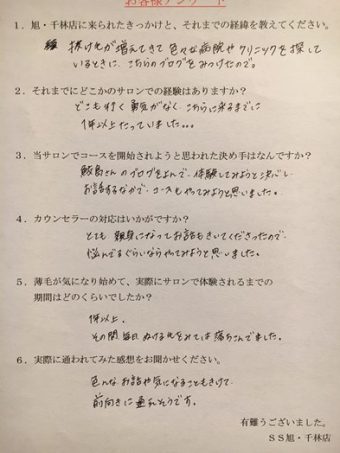 お客様アンケート
1．旭・千林店に来られたきっかけと、それまでの経緯を教えてください。
抜け毛が増えてきて色々な病院やクリニックを探して
いるときに、こちらのブログをみつけたので。
2．それまでにどこかのサロンでの経験はありますか？
どこも行く勇気がなく、こちらに来るまでに
1年以上たっていました。。。
3．当サロンでコースを開始されようと思われた決め手はなんですか？
鮫島さんのブログをよんで、体験してみようと決心し
お話するなかで、コースもやってみようと思いました。
4．カウンセラーの対応はいかがですか？
とても親身になってお話もきいてくださったので、
悩んでるぐらいならやってみようと思いました。
5．薄毛が気になり始めて、実際にサロンで体験されるまでの
期間はどのくらいでしたか？
1年以上。
その間毎日ぬける毛をみては落ちこんでました。
6．実際に通われてみた感想をお聞かせください。
色んなお話や気になることもきけて、
前向きに重れそうです。
有難うございました。
ＳＳ旭・千林店